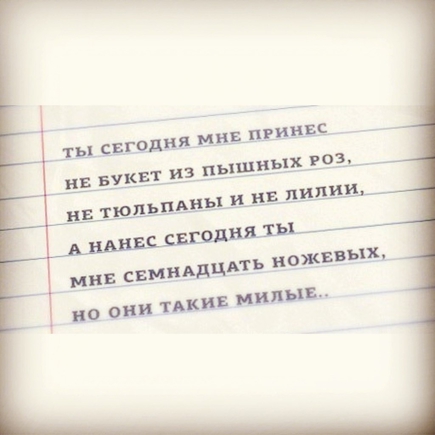 ТЫ СЕГОДНЯ МНЕ ПРИНЕС
НЕ БУКЕТ ИЗ ПЫШНЫХ РОЗ,
НЕ ТЮЛЬПАНЫ И НЕ ЛИЛИИ,
А НАНЕС СЕГОДНЯ ТЫ
МНЕ СЕМНАДЦАТЬ НОЖЕВЫХ,
НО ОНИ ТАКИЕ МИЛЫЕ..